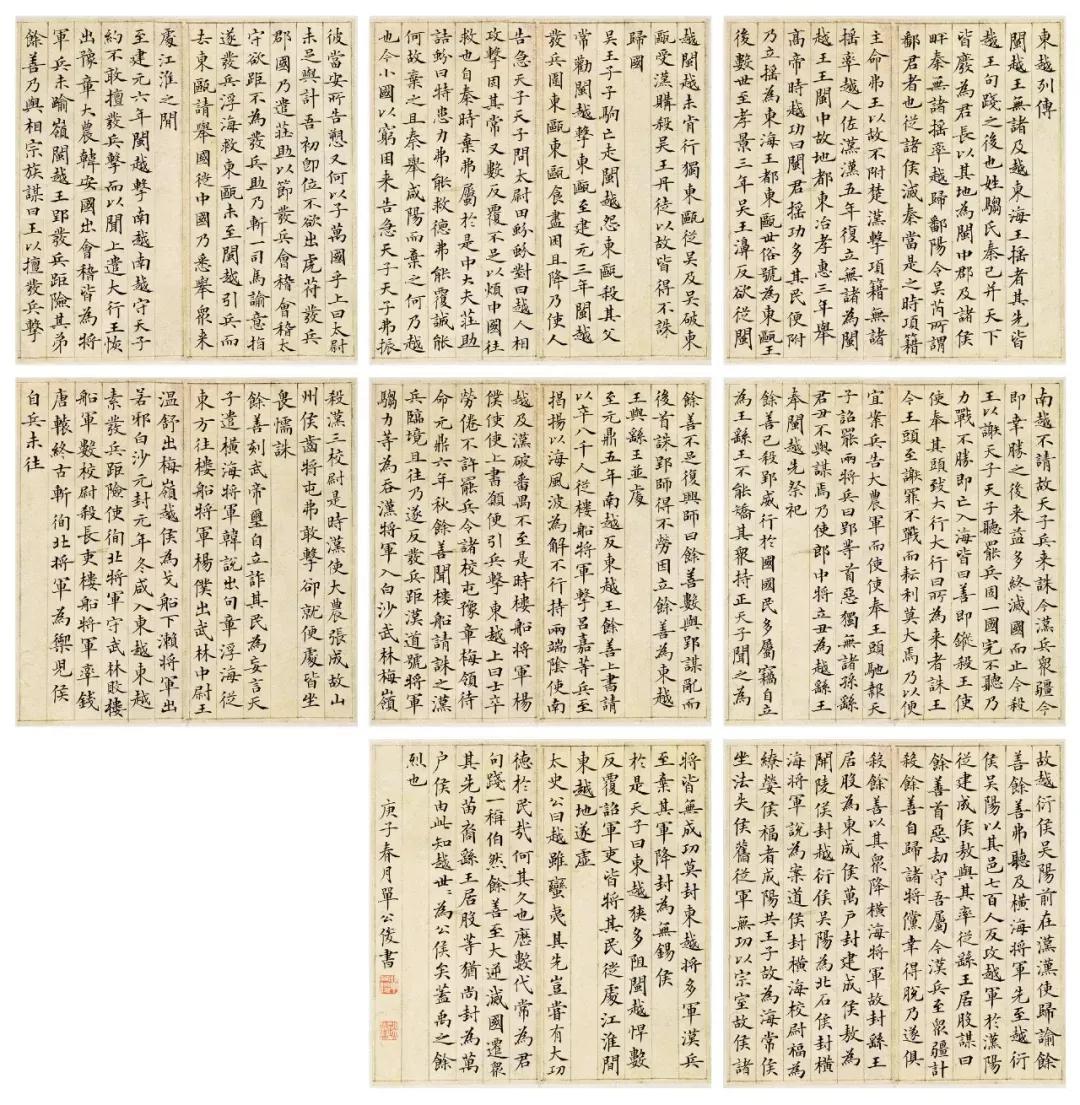 東越列傳
閩越王無諸及越東海王揺者其先皆
越王句踐之後也姓騶氏秦已并天下
皆廢為君長以其地為閩中郡及諸侯
畔秦無諸揺率越歸鄱陽令吳芮所謂
鄱君者也從諸侯滅秦當是之時項籍
主命弗王以故不附楚漢擊項籍無諸
揺率越人佐漢漢五年復立無諸為閩
越王王閩中故地都東冶孝惠三年舉
高帝時越功曰閩君揺功多其民便附
乃立揺為東海王都東甌世俗號為東甌王
後數世至孝景三年吳王濞反欲從閩
越閩越未肯行獨東甌從吳及吳破東
甌受漢購殺吳王丹徒以故皆得不誅
歸國
吳王子子駒亡走閩越怨東甌殺其父
常勸閩越擊東甌至建元三年閩越
發兵圍東甌東甌食盡困且降乃使人
告急天子天子問太尉田蚡蚡對曰越人相
攻擊固其常又數反覆不足以煩中國往
救也自秦時棄弗屬於是中大夫莊助
詰蚡曰特患力弗能救德弗能覆誠能
何故棄之且秦舉咸陽而棄之何乃越
也今小國以窮困来告急天子天子弗振
彼當安所告愬又何以子萬國乎上曰太尉
未足與計吾初即位不欲出虎符發兵
郡國乃遣莊助以節發兵會稽會稽太
守欲距不為發兵助乃斬一司馬諭意指
遂發兵浮海救東甌未至閩越引兵而
去東甌請舉國徙中國乃悉舉衆来
處江淮之間
至建元六年閩越擊南越南越守天子
約不敢擅發兵擊而以聞上遣大行王恢
出豫章大農韓安國出會稽皆為將
軍兵未踰嶺閩越王郢發兵距險其弟
餘善乃與相宗族謀曰王以擅發兵擊
南越不請故天子兵来誅今漢兵衆疆今
即幸勝之後来益多終滅國而止今殺
王以謝天子天子聽罷兵固一國完不聽乃
力戰不勝即亡入海皆曰善即鏦殺王使
使奉其頭致大行大行曰所為来者誅王
今王頭至謝罪不戰而耘利莫大焉乃以便
宜案兵告大農軍而使使奉王頭馳報天
子詔罷兩將兵曰郢等首惡獨無諸孫繇
君丑不與謀焉乃使郎中將立丑為越繇王
奉閩越先祭祀
餘善已殺郢威行於國國民多屬竊自立
為王繇王不能矯其衆持正天子聞之為
餘善不足復興師曰餘善數與郢謀亂而
後首誅郢師得不勞因立餘善為東越
王與繇王並處
至元鼎五年南越反東越王餘善上書請
以卒八千人從樓船將軍擊呂嘉等兵至
揭揚以海風波為解不行持兩端陰使南
越及漢破番禺不至是時樓船將軍楊
僕使使上書願便引兵擊東越上曰士卒
勞倦不許罷兵令諸校屯豫章梅領待
命元鼎六年秋餘善聞樓船請誅之漢
兵臨境且往乃遂反發兵距漢道號將軍
騶力等為吞漢將軍入白沙武林梅嶺
殺漢三校尉是時漢使大農張成故山
州侯齒將屯弗敢擊卻就便處皆坐
畏懦誅
餘善刻武帝璽自立詐其民為妄言天
子遣橫海將軍韓說出句章浮海從
東方往樓船將軍楊僕出武林中尉王
温舒出梅嶺越侯為戈船下瀨將軍出
若邪白沙元封元年冬咸入東越東越
素發兵距險使徇北將軍守武林敗樓
船軍數校尉殺長吏樓船將軍率錢
唐轅終古斬徇北將軍為禦兒侯
自兵未往
故越衍侯吳陽前在漢漢使歸諭餘
善餘善弗聽及橫海將軍先至越衍
侯吳陽以其邑七百人反攻越軍於漢陽
從建成侯敖與其率從繇王居股謀曰
餘善首惡劫守吾屬今漢兵至衆疆計
殺餘善自歸諸將儻幸得脫乃遂俱
殺餘善以其衆降橫海將軍故封繇王
居股為東成侯萬戶封建成侯敖為
開陵侯封越衍侯吳陽為北石侯封橫
海將軍說為案道侯封橫海校尉福為
繚嫈侯福者成陽共王子故為海常侯
坐法失侯舊從軍無功以宗室故侯諸
將皆無成功莫封東越將多軍漢兵
至棄其軍降封為無錫侯
於是天子曰東越狹多阻閩越悍數
反覆詔軍吏皆將其民徙處江淮間
東越地遂虛
太史公曰越雖蠻夷其先豈嘗有大功
德於民哉何其久也歷數代常為君
句踐一稱伯然餘善至大逆滅國遷衆
其先苗裔繇王居股等猶尚封為萬
户侯由此知越世〻為公侯矣蓋禹之餘
烈也
庚子春月單公俊書